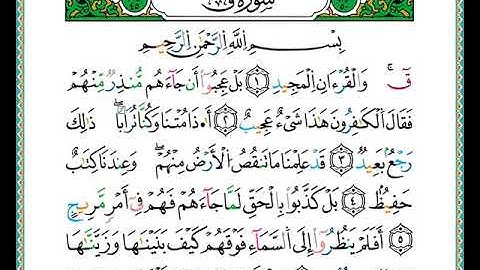 سورة ق
بِسْمِ ٱللَّهِ ٱلرَّحْمَٰنِ ٱلرَّحِيمِ
قٓ ۚ وَٱلْقُرْءَانِ ٱلْمَجِيدِ ١ بَلْ عَجِبُوٓا۟ أَن جَآءَهُم مُّنذِرٌ مِّنْهُمْ
فَقَالَ ٱلْكَٰفِرُونَ هَٰذَا شَىْءٌ عَجِيبٌ ٢ أَءِذَا مِتْنَا وَكُنَّا تُرَابًا ۖ ذَٰلِكَ
رَجْعٌۢ بَعِيدٌ ٣ قَدْ عَلِمْنَا مَا تَنقُصُ ٱلْأَرْضُ مِنْهُمْ ۖ وَعِندَنَا كِتَٰبٌ
حَفِيظٌۢ ٤ بَلْ كَذَّبُوا۟ بِٱلْحَقِّ لَمَّا جَآءَهُمْ فَهُمْ فِىٓ أَمْرٍ مَّرِيجٍ
٥ أَفَلَمْ يَنظُرُوٓا۟ إِلَى ٱلسَّمَآءِ فَوْقَهُمْ كَيْفَ بَنَيْنَٰهَا وَزَيَّنَّٰهَا